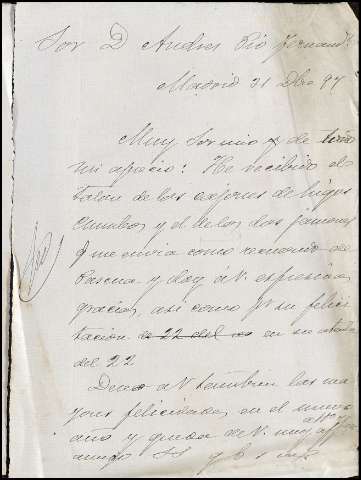 Sor D Andres Pio Fernandz
Madrid 31 Dbre 97
Muy Sor mio y de toda
mi aprecio: He recibido el
talon de los cajones de higos
chumbos y el de los dos jamones
q me envia como recuerdo de
Pascua y doy á V. expresivas
gracias, asi como pr su felici
tacion de 22 del en su atenta
del 22
Deseo a V tambien las ma
yores felicidades en el nuevo
año y queda de V. muy affmo
amigo SS y b s m